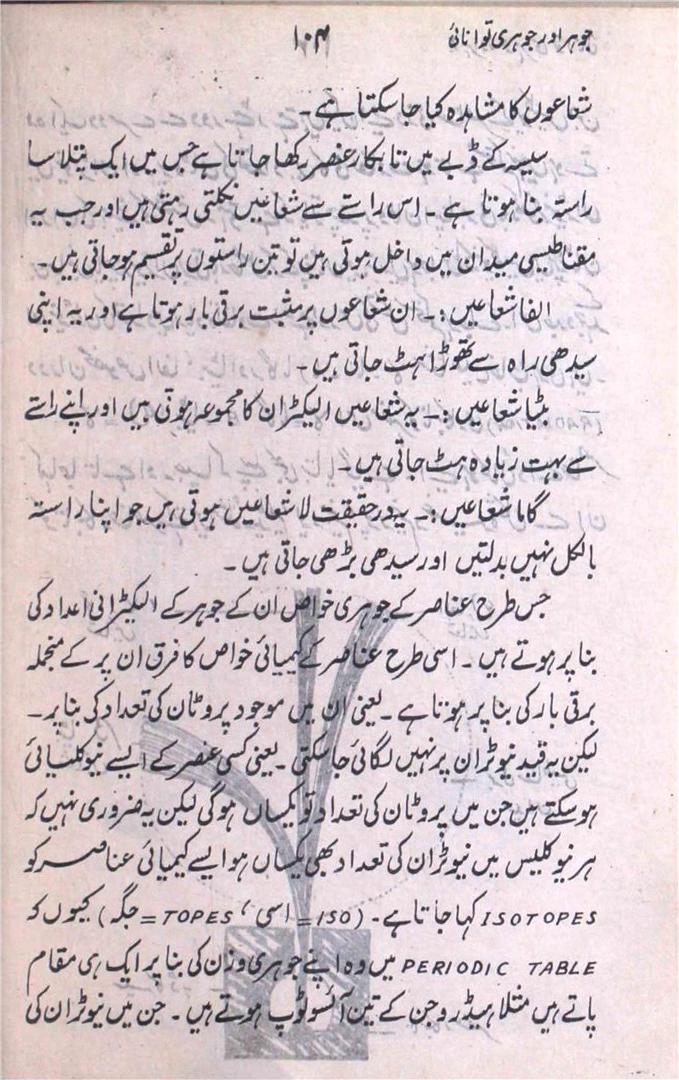 جوہر اور جوہری توانائی ۱۰۴
شعاعوں کا مشاہدہ کیا جا سکتا ہے۔
سیسہ کے ڈبے میں تابکار عنصر رکھا جاتا ہے جس میں ایک پتلا سا
راستہ بنا ہوتا ہے ۔ اس راستے سے شعاعیں نکلتی رہتی ہیں اور جب یہ
مقناطیسی میدان میں داخل ہوتی ہیں تو تین راستوں پر تقسیم ہو جاتی ہیں۔
الفا شعاعیں :۔ ان شعاعوں پر مثبت برقی بار ہوتا ہے اور یہ اپنی
سیدھی راہ سے تھوڑا ہٹ جاتی ہیں۔
بٹیا شعاعیں :۔ یہ شعاعیں الیکٹران کا مجموعہ ہوتی ہیں اور اپنے راستے
سے بہت زیادہ ہٹ جاتی ہیں۔
گاما شعاعیں :۔ یہ درحقیقت لا شعاعیں ہوتی ہیں جو اپنا راستہ
بالکل نہیں بدلتیں اور سیدھی بڑھی جاتی ہیں ۔
جس طرح عناصر کے جوہری خواص ان کے جوہر کے الیکٹرانی اعداد کی
بنا پر ہوتے ہیں ۔ اسی طرح عناصر کے کیمیائی خواص کا فرق ان پر کے منجملہ
برقی بار کی بنا پر ہوتا ہے ۔ یعنی ان میں موجود پروٹان کی تعداد کی بنا پر۔
لیکن یہ قید نیوٹران پر نہیں لگائی جا سکتی ۔ یعنی کسی عنصر کے ایسے نیوکلیائی
ہو سکتے ہیں جن میں پروٹان کی تعداد تو یکساں ہوگی لیکن یہ ضروری نہیں کہ
ہر نیوکلیس میں نیوٹران کی تعداد بھی یکساں ہو ایسے کیمیائی عناصر کو
ISOTOPES کہا جاتا ہے۔ (ISO = اسی، TOPES = جگہ) کیوں کہ
PERIODIC TABLE میں وہ اپنے جوہری وزن کی بنا پر ایک ہی مقام
پاتے ہیں مثلا ہیڈروجن کے تین آئسوٹوپ ہوتے ہیں ۔ جن میں نیوٹران کی